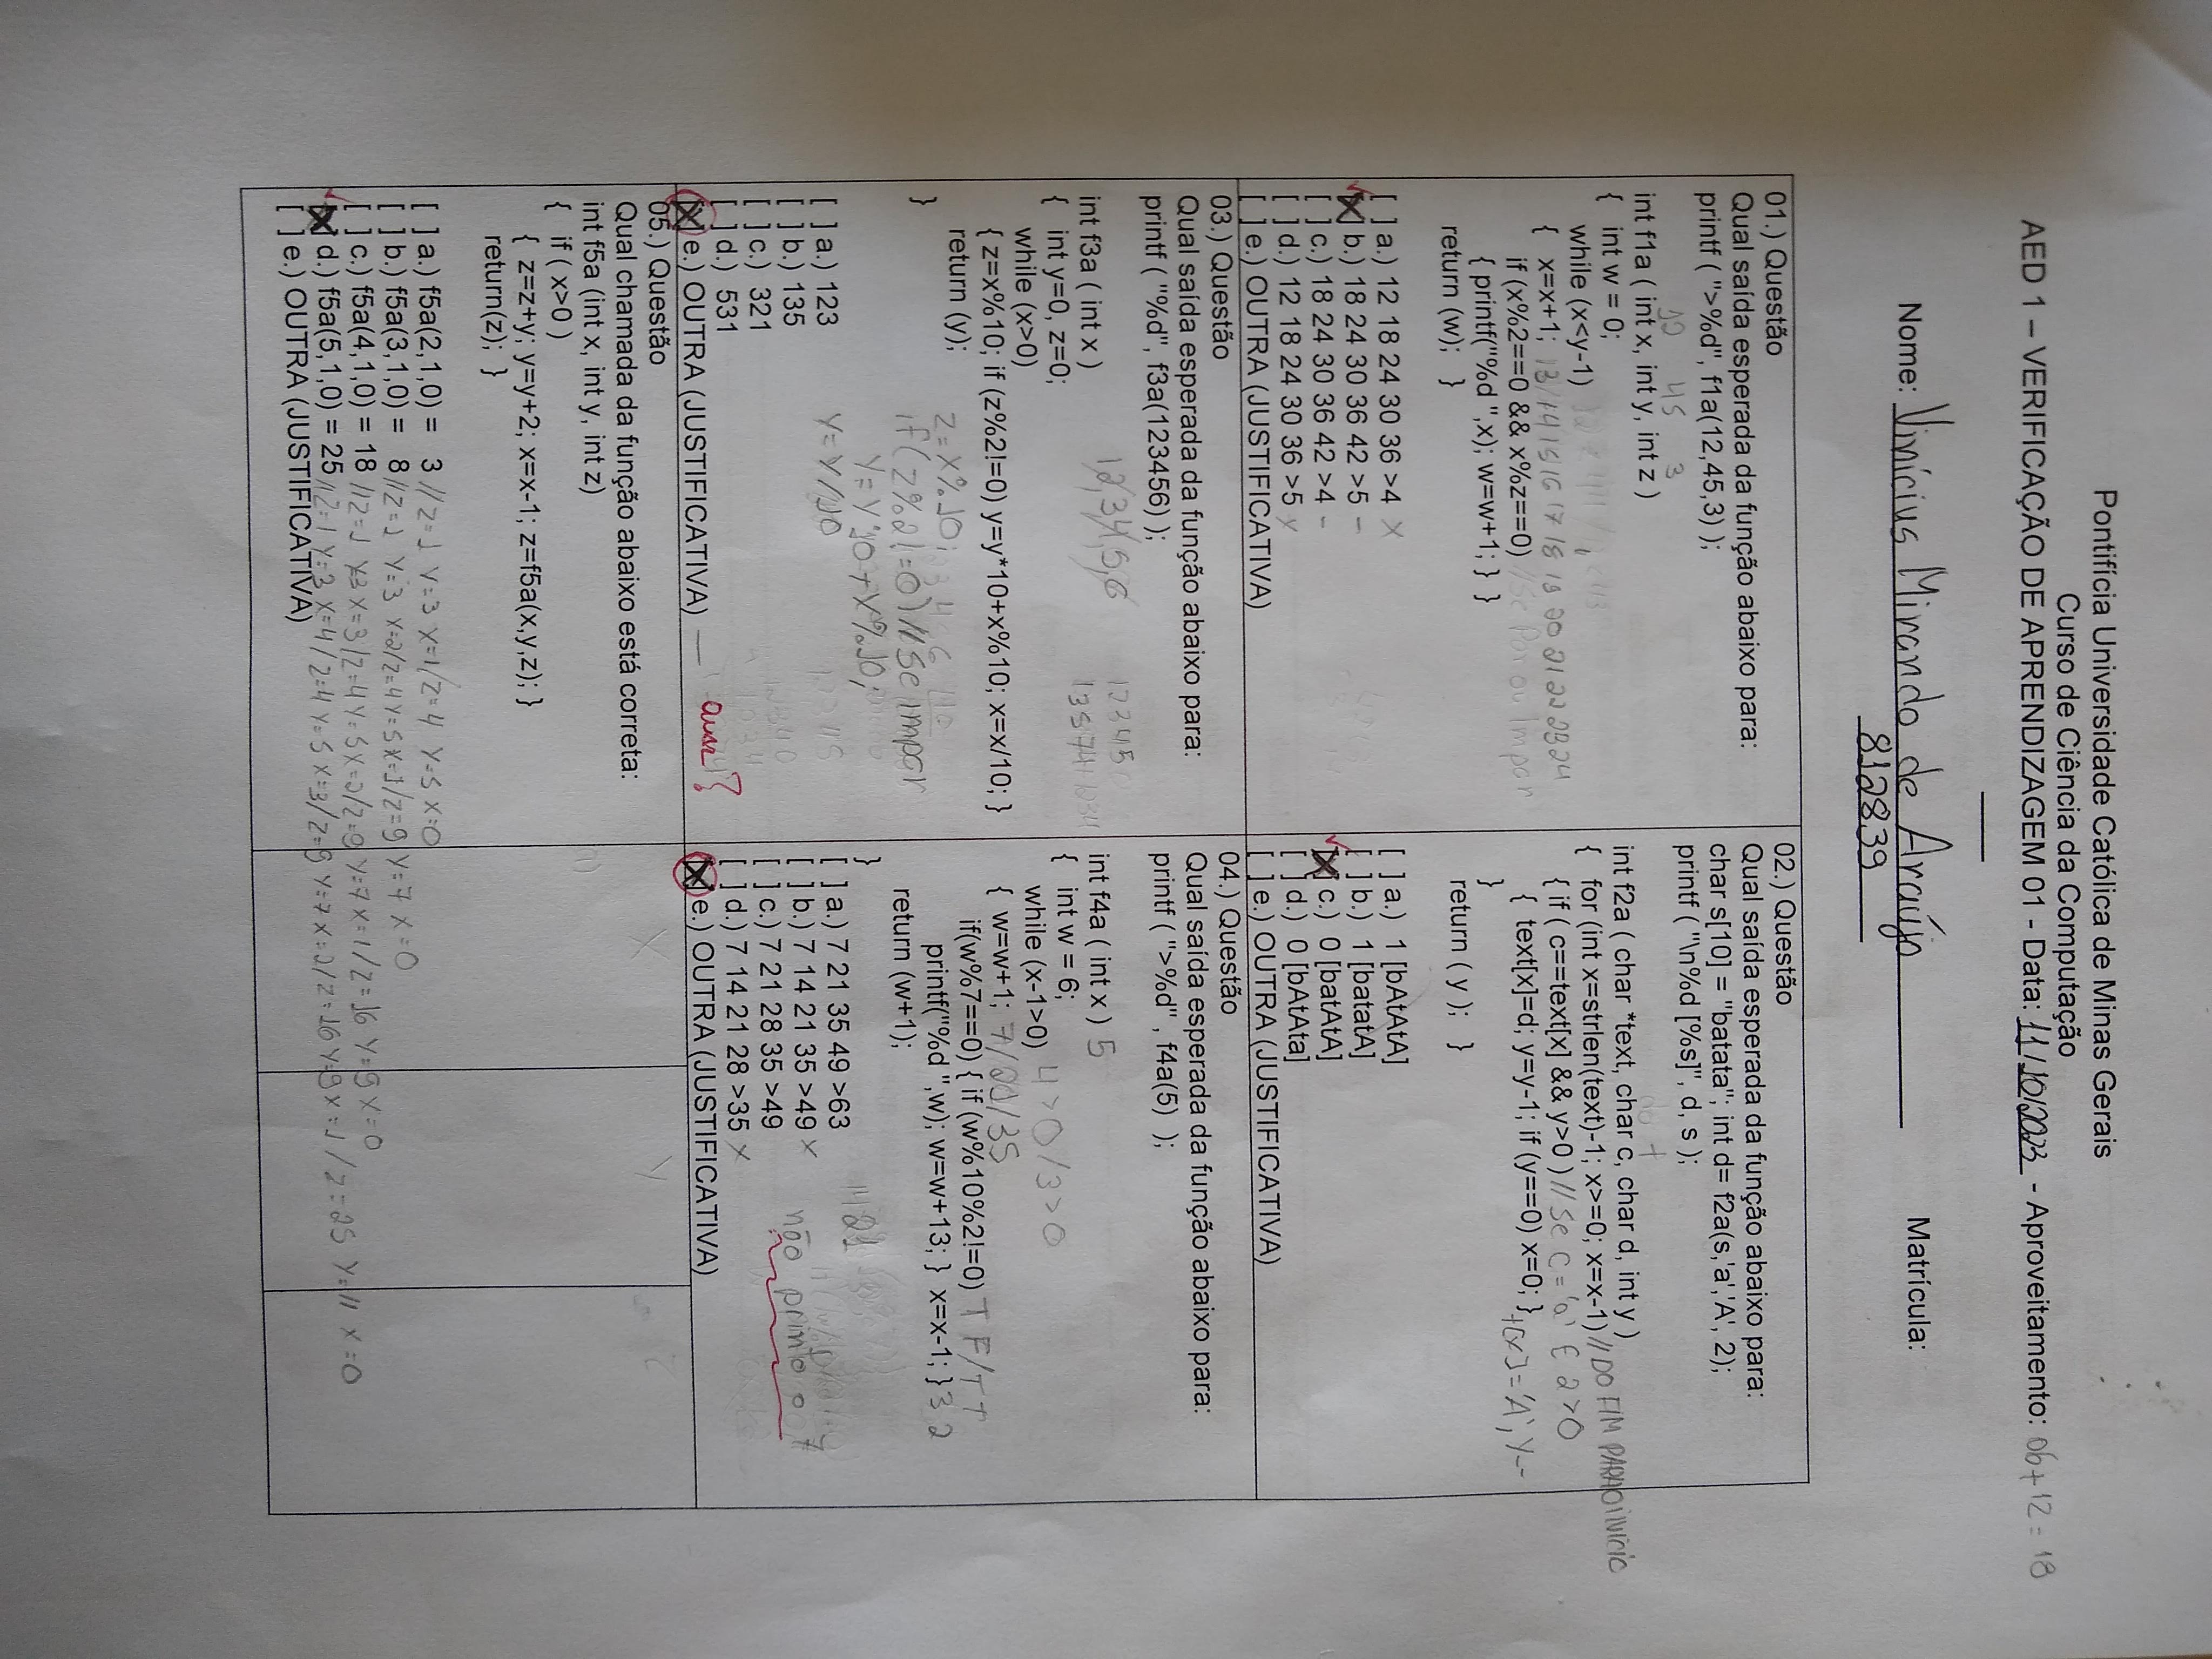 Pontifícia Universidade Católica de Minas Gerais
Curso de Ciência da Computação
AED 1 – VERIFICAÇÃO DE APRENDIZAGEM 01 - Data: 11/10/2023 - Aproveitamento: 06+12=18
Nome: Vinícius Miranda de Araújo Matrícula:
812839
01.) Questão
Qual saída esperada da função abaixo para:
printf ( ">%d", f1a(12,45,3) );
12 45 3
int f1a ( int x, int y, int z )
{ int w = 0;
while (x<y-1)
{ x=x+1; 13/14 15 16 17 18 19 20 21 22 23 24
if (x%2==0 && x%z==0) // Se Par ou Impar
{ printf("%d ",x); w=w+1; } }
return (w); }
[ ] a.) 12 18 24 30 36 >4 X
[X] b.) 18 24 30 36 42 >5 -
[ ] c.) 18 24 30 36 42 >4 -
[ ] d.) 12 18 24 30 36 >5 X
[ ] e.) OUTRA (JUSTIFICATIVA)
02.) Questão
Qual saída esperada da função abaixo para:
char s[10] = "batata"; int d= f2a(s,'a','A', 2);
printf ( "\n%d [%s]", d, s );
int f2a ( char *text, char c, char d, int y )
{ for (int x=strlen(text)-1; x>=0; x=x-1) // DO FIM PARA O INICIO
{ if ( c==text[x] && y>0 ) // Se C = 'a' E 2>0
{ text[x]=d; y=y-1; if (y==0) x=0; } t[x]='A', y--
}
return ( y ); }
[ ] a.) 1 [bAtAtA]
[ ] b.) 1 [batatA]
[X] c.) 0 [batAtA]
[ ] d.) 0 [bAtAta]
[ ] e.) OUTRA (JUSTIFICATIVA)
03.) Questão
Qual saída esperada da função abaixo para:
printf ( "%d", f3a(123456) );
int f3a ( int x )
{ int y=0, z=0;
while (x>0)
{ z=x%10; if (z%2!=0) y=y*10+x%10; x=x/10; }
return (y);
}
z = x%10;
if (z%2!=0) // Se impar
y = y*10 + x%10;
[ ] a.) 123
[ ] b.) 135
[ ] c.) 321
[ ] d.) 531
[X] e.) OUTRA (JUSTIFICATIVA)
04.) Questão
Qual saída esperada da função abaixo para:
printf ( ">%d" , f4a(5) );
int f4a ( int x ) 5
{ int w = 6;
while (x-1>0) 4>0/3>0
{ w=w+1; 7/21/35
if(w%7==0) { if (w%10%2!=0) T F/T T
printf("%d ",w); w=w+13; } x=x-1; } 3 2
return (w+1);
}
[ ] a.) 7 21 35 49 >63
[ ] b.) 7 14 21 35 >49 X
[ ] c.) 7 21 28 35 >49
[ ] d.) 7 14 21 28 >35 X
não printa o
[X] e.) OUTRA (JUSTIFICATIVA)
05.) Questão
Qual chamada da função abaixo está correta:
int f5a (int x, int y, int z)
{ if ( x>0 )
{ z=z+y; y=y+2; x=x-1; z=f5a(x,y,z); }
return(z); }
[ ] a.) f5a(2,1,0) = 3 // z=1 y=3 x=1/z=4 y=5 x=0
[ ] b.) f5a(3,1,0) = 8 // z=1 y=3 x=2/z=4 y=5 x=1/z=9 y=7 x=0
[ ] c.) f5a(4,1,0) = 18 // z=1 y=3 x=3/z=4 y=5 x=2/z=9 y=7 x=1/z=16 y=9 x=0
[X] d.) f5a(5,1,0) = 25 // z=1 y=3 x=4/z=4 y=5 x=3/z=9 y=7 x=2/z=16 y=9 x=1/z=25 y=11 x=0
[ ] e.) OUTRA (JUSTIFICATIVA)